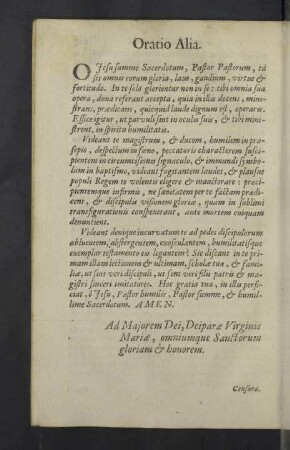 Oratio Alia.
O Jesu summe Sacerdotum, Pastor Pastorum, tu
sis omnis eorum gloria, laus, gaudium, virtus &
fortitudo. In te solâ glorientur non in se: tibi omnia sua
opera, dona referant accepta, quia in illis docens, mini-
strans, prædicans, quicquid laude dignum est, operaris.
Effice igitur, ut parvuli sint in oculis suis, & tibi mini-
strent, in spiritu humilitatis.
Videant te magistrum, & ducem, humilem in præ-
sepio, despectum in fœno, peccatoris characterem susci-
pientem in circumcisionis signaculo, & immundi symbo-
lum in baptismo, videant fugitantem laudes, & plausus
populi Regem te volentis eligere & inaugurare: præci-
pientemque infirmis, ne sanitatem per te factam prædi-
cent, & discipulis visionem gloriæ, quam in sublimi
transfigurationis conspexerant, ante mortem cuiquam
denuntient.
Videant denique incurvatum te ad pedes discipulorum
abluentem, abstergentem, exosculantem, humilitatisque
exemplar testamento eis legantem! Sic discant in te pri-
mam illam lectionem & ultimam, scholæ tuæ, & fami-
liæ, ut sint veri discipuli, ut sint veri filii patris & ma-
gistri sinceri imitatores. Hoc gratia tua, in illis perfi-
ciat, ô Jesu, Pastor humilis, Pastor summe, & humil-
lime Sacerdotum. AMEN.
Ad Majorem Dei, Deiparæ Virginis
Mariæ, omniumque Sanctorum
gloriam & honorem.
Censura.